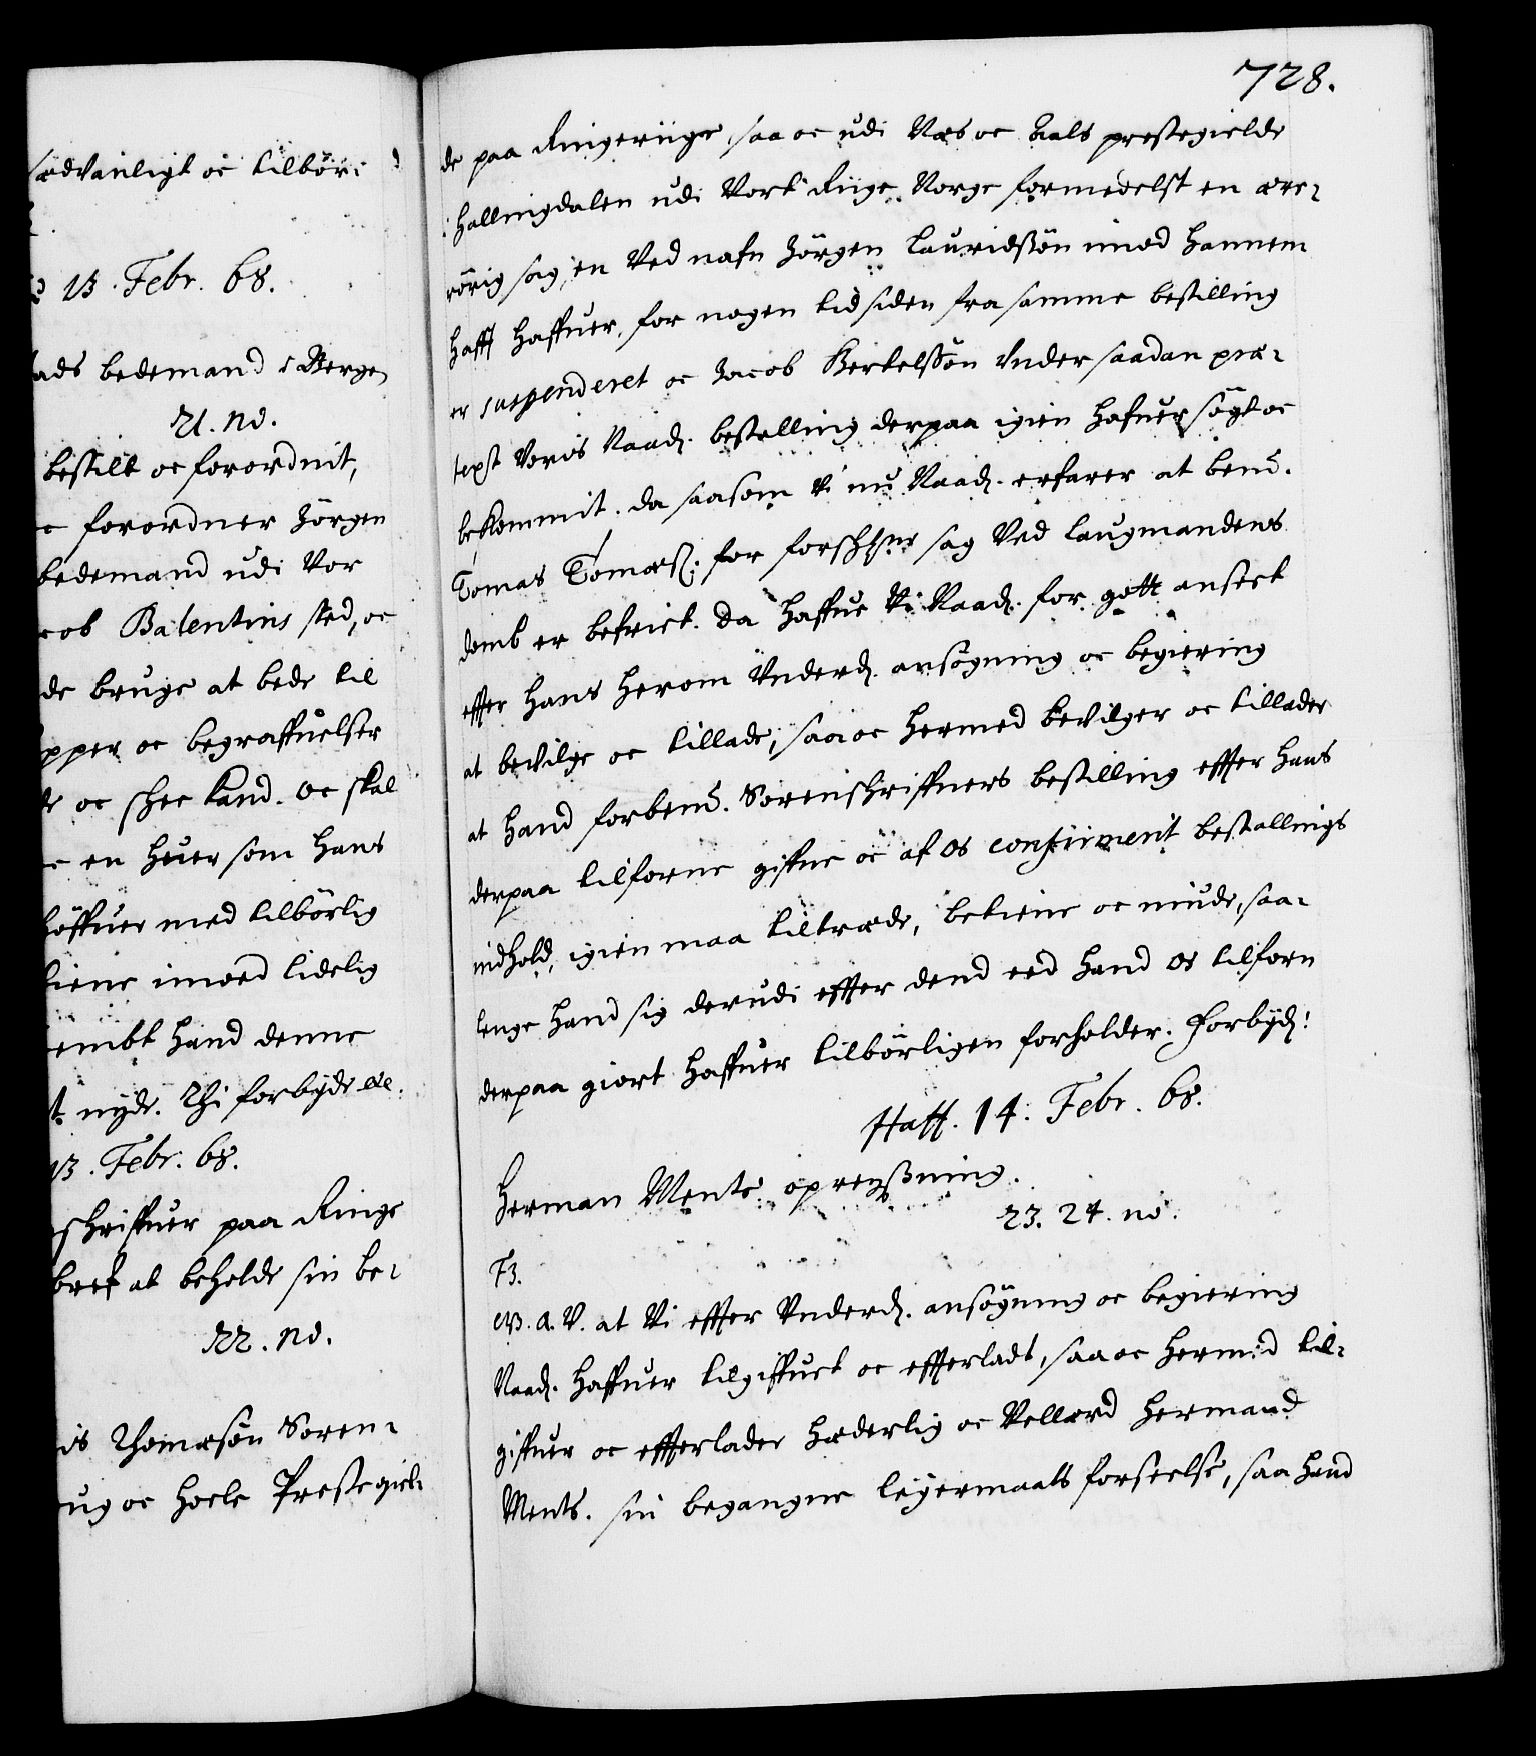 sædvanligt oc tilbör:
13. Febr. 68.
bedemand i Bergen
21. no.
bestilt oc forordnit,
forordner Jörgen
bedemand udi Vor
Balentins sted, oc
de bruge at bede til
oc begraffuelser
oc skee kand. oc skal
en huer som hans
med tilbörlig
imod lidelig
hand denne
nyde. Thi forbyde etc.
13. Febr. 68.
schriffuer paa Ringe
bref at beholde sin be-
22. no.
Thomæsön Soren-
oc Hoele Prestegiel-
728.
de paa Ringeriige, saa oc udi Næs oc Aals prestegielde
i Hallingdalen udi Vort Riige Norge formedelst en ære-
rörig sag, en Ved nafn Jörgen Lauridssön imod hannem
hafft haffuer, for nogen tid siden fra samme bestilling
er suspenderet oc Jacob Bertelssön Under saadan præ-
text Voris Naad. bestalling derpaa igien hafuer sögt oc
bekommit. da saasom Vi nu Naad. erfarer at bem.
Tomas Tomæs: for forschne sag Ved Laugmandens
domb er befriet. Da haffue Vi Naad. for gott anseet
effter hans herom Underd. ansögning oc begiering
at bevilge oc tillade, saa oc hermed bevilger oc tillader
at hand forbem. Sorenschriffuers bestilling effter hans
derpaa tilforne giffne oc af os confirmerit bestallings
indhold, igien maa tiltræde, betiene oc niude, saa-
lenge hand sig derudi effter dend eed hand os tilforn
derpaa giort haffuer tilbörligen forholder. Forbyd:
Haff. 14. Febr. 68.
Herman Ments opreyssning.
23. 24. no.
F3.
G. A. V. at Vi effter Underd. ansögning oc begiering
Naad. haffuer tilgiffuet oc effterladt, saa oc hermed til-
giffuer oc effterlader Hæderlig oc Vellærd Hermand
Ments. sin begangne leyermaals forseelse, saa hand